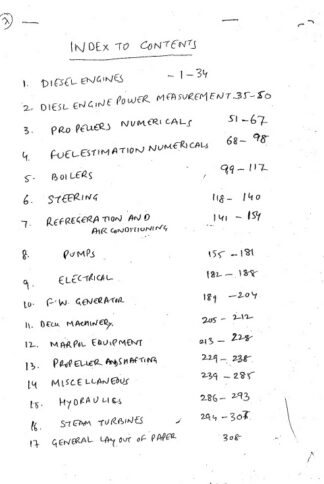 INDEX TO CONTENTS
1. DIESEL ENGINES - 1-34
2. DIESL ENGINE POWER MEASUREMENT. 35-50
3. PROPELLERS NUMERICALS 51-67
4. FUEL ESTIMATION NUMERICALS 68-98
5. BOILERS 99-117
6. STEERING 118-140
7. REFREGERATION AND 141-154
AIR CONDITIONING
8. PUMPS 155-181
9. ELECTRICAL 182-188
10. F.W. GENERATOR 189-204
11. DECK MACHINERY 205-212
12. MARPOL EQUIPMENT 213-228
13. PROPELLER AND SHAFTING 229-238
14 MISCELLANEOUS 239-285
15. HYDRAULICS 286-293
16. STEAM TURBINES 294-307
17 GENERAL LAY OUT OF PAPER 308